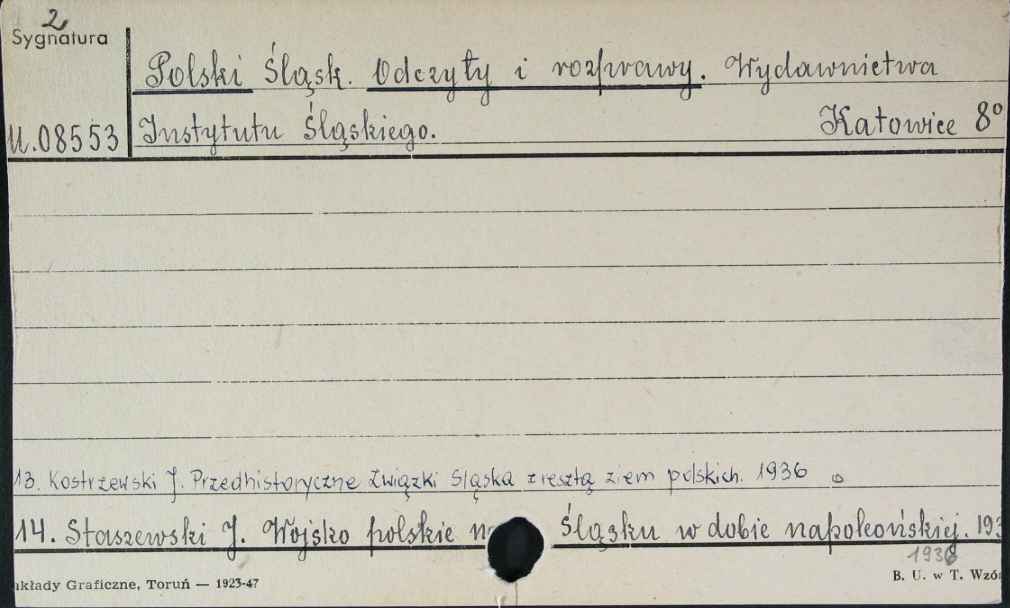 2
Sygnatura
Polski Śląsk. Odczyty i rozprawy. Wydawnictwa
U.08553 Instytutu Śląskiego. Katowice 8°
13. Kostrzewski J. Przedhistoryczne związki Śląska z resztą ziem polskich. 1936
14. Staszewski J. Wojsko polskie na Śląsku w dobie napoleońskiej. 193
1936
akłady Graficzne, Toruń — 1923-47 B. U. w T. Wzór